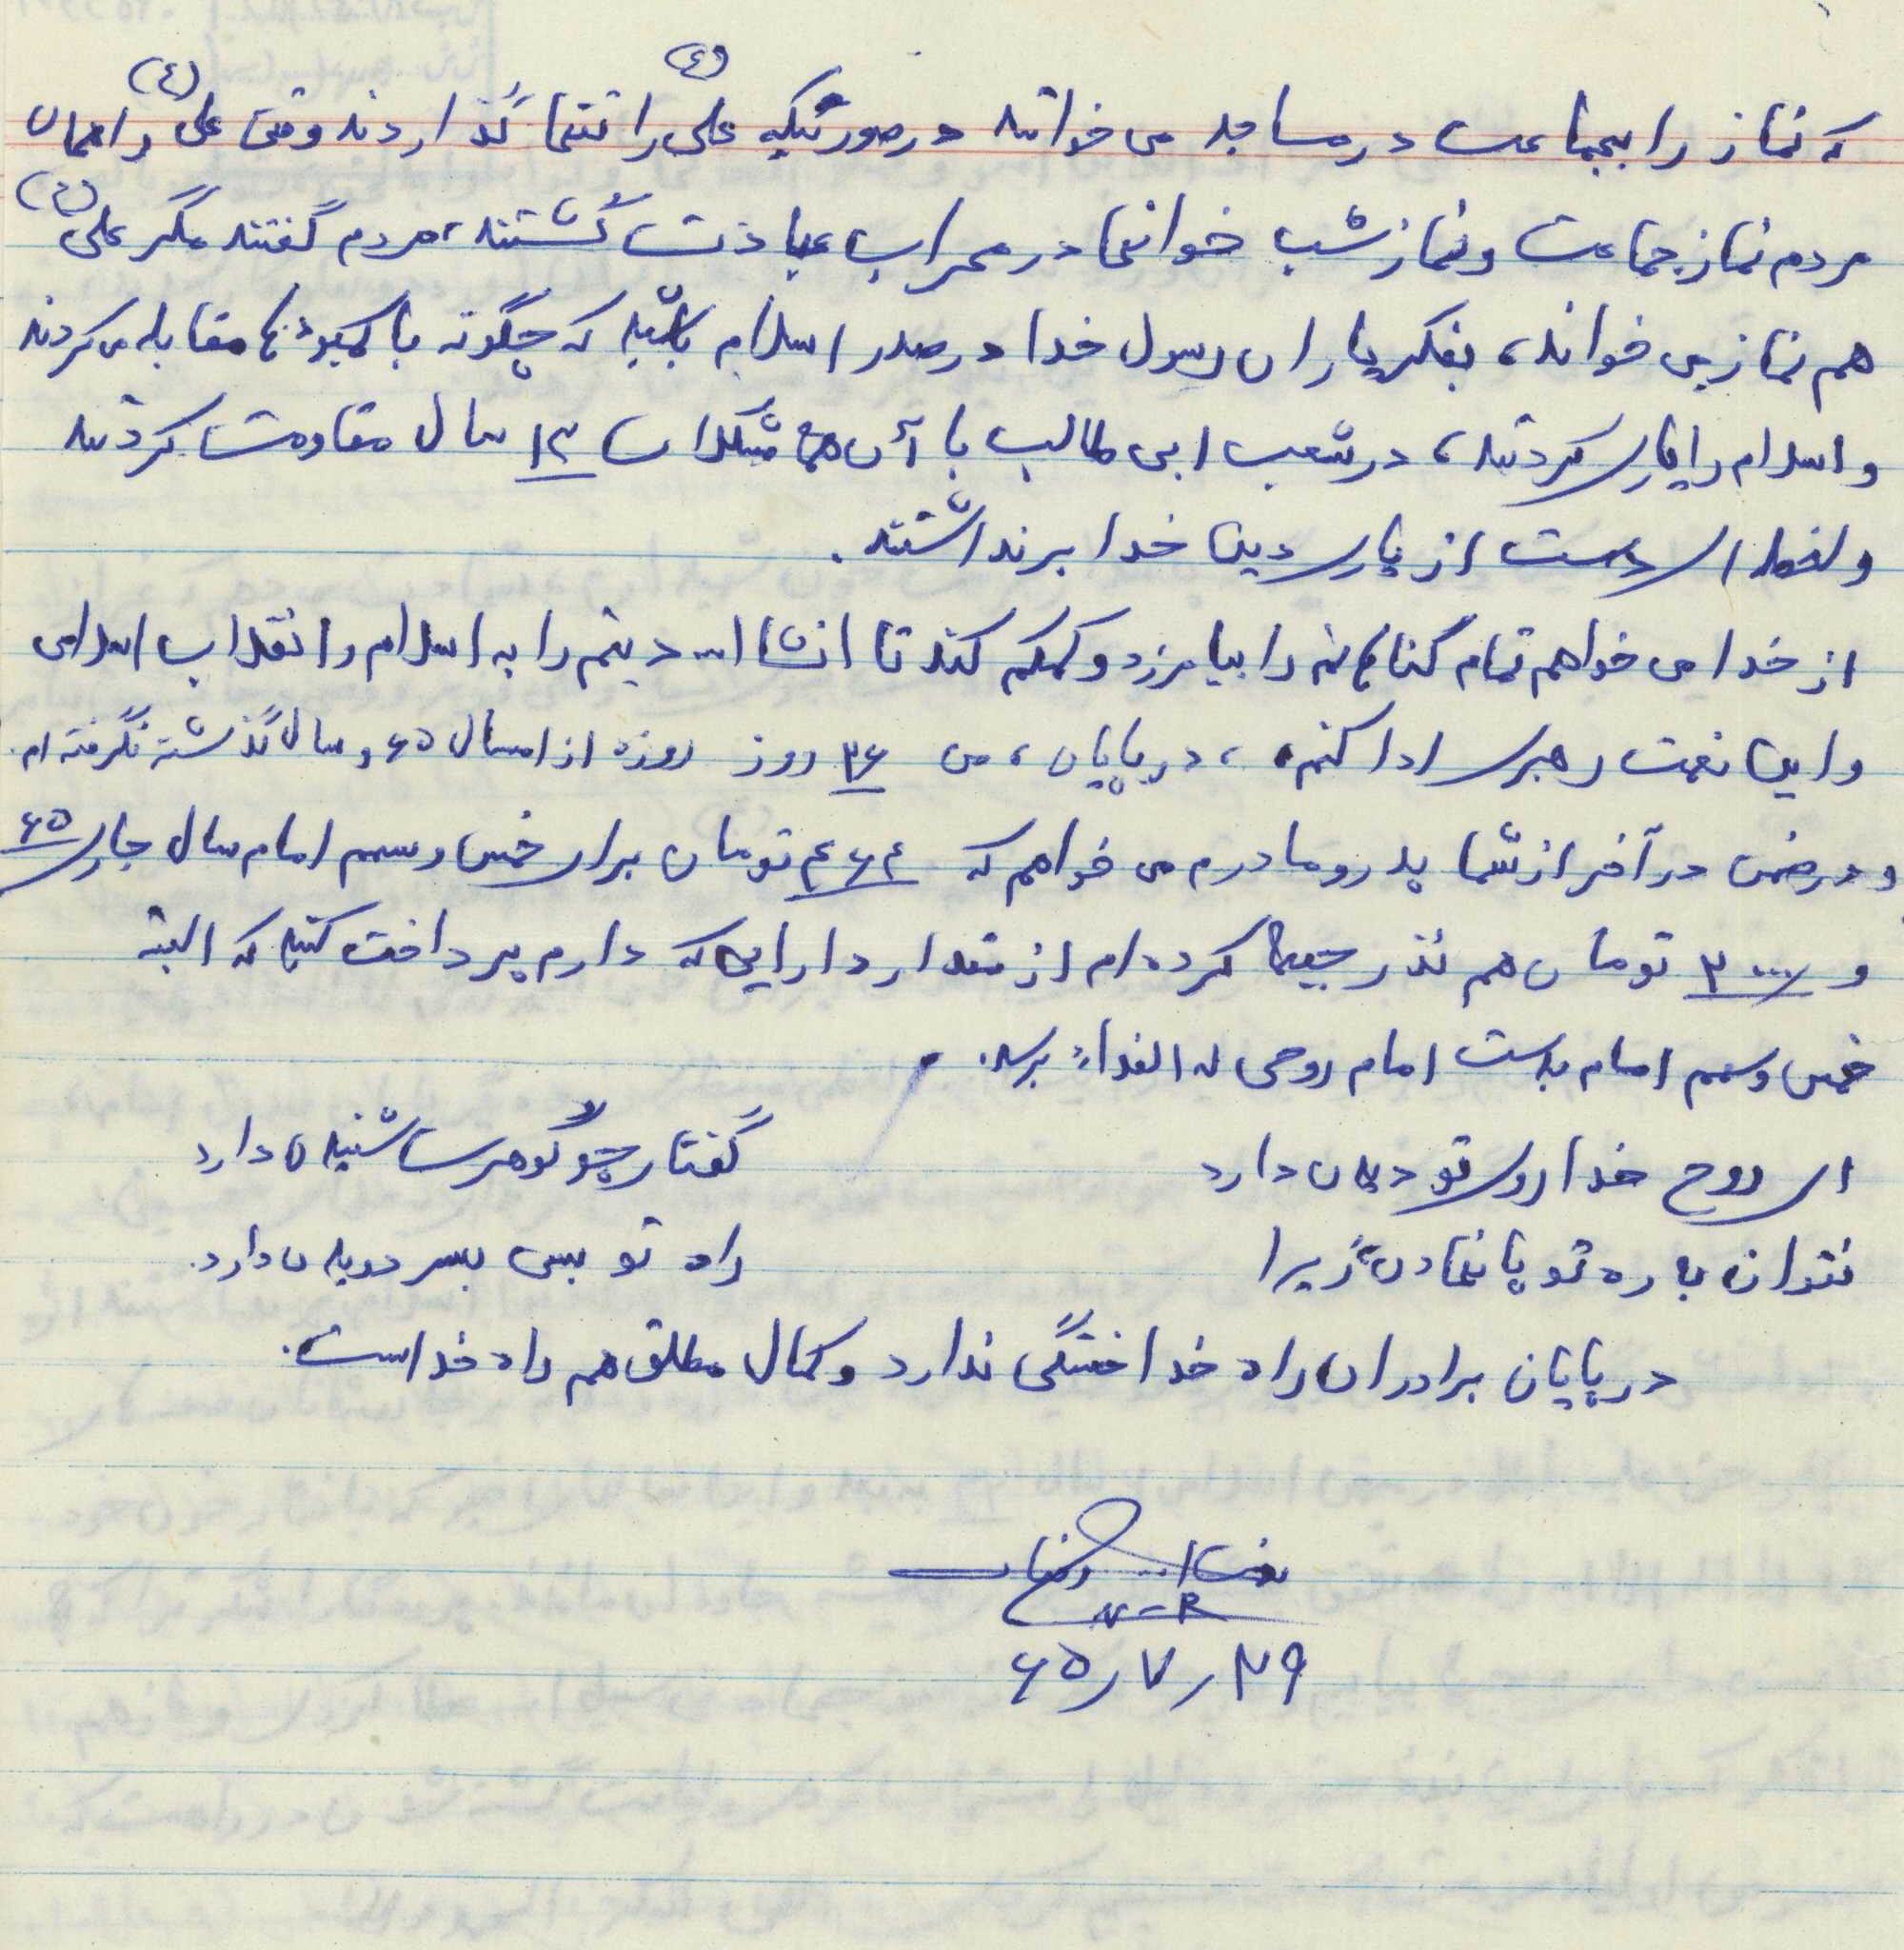 که نماز را بجماعت در مساجد می خوانند در صورتیکه علی (ع) را تنها گذاردند وقتی علی (ع) را همان
مردم نماز جماعت و نماز شب خوانها در محراب عبادت کشتند، مردم گفتند مگر علی (ع)
هم نماز می خواند، بفکر یاران رسول خدا در صدر اسلام باشید که چگونه با کمبودها مقابله می کردند
و اسلام را یاری کردند، در شعب ابی طالب با آن همه مشکلات ۱۳ سال مقاومت کردند
و لحظه ای دست از یاری دین خدا برنداشتند.
از خدا می خواهم تمام گناهانم را بیامرزد و کمکم کند تا انشاا... دینم را به اسلام و انقلاب اسلامی
و این نعمت رهبری ادا کنم، در پایان، من ۳۶ روز روزه از امسال ۶۵ و سال گذشته نگرفته ام.
و در ضمن در آخر از شما پدر و مادرم می خواهم که ۴۶۴ تومان برای خمس و سهم امام سال جاری ۶۵
و ۳۰۰۰ تومان هم نذر جبهه کرده ام از مقدار دارایی که دارم پرداخت کنید که البته
خمس و سهم امام بدست امام روحی له الفداء برسد.
ای روح خدا روی تو دیدن دارد
گفتار چو گوهرت شنیدن دارد
نتوان به ره تو پا نهادن زیرا
راه تو بسی بسر دویدن دارد.
در پایان برادران راه خدا خستگی ندارد و کمال مطلق هم راه خداست.
N-R
۶۵/۷/۲۹